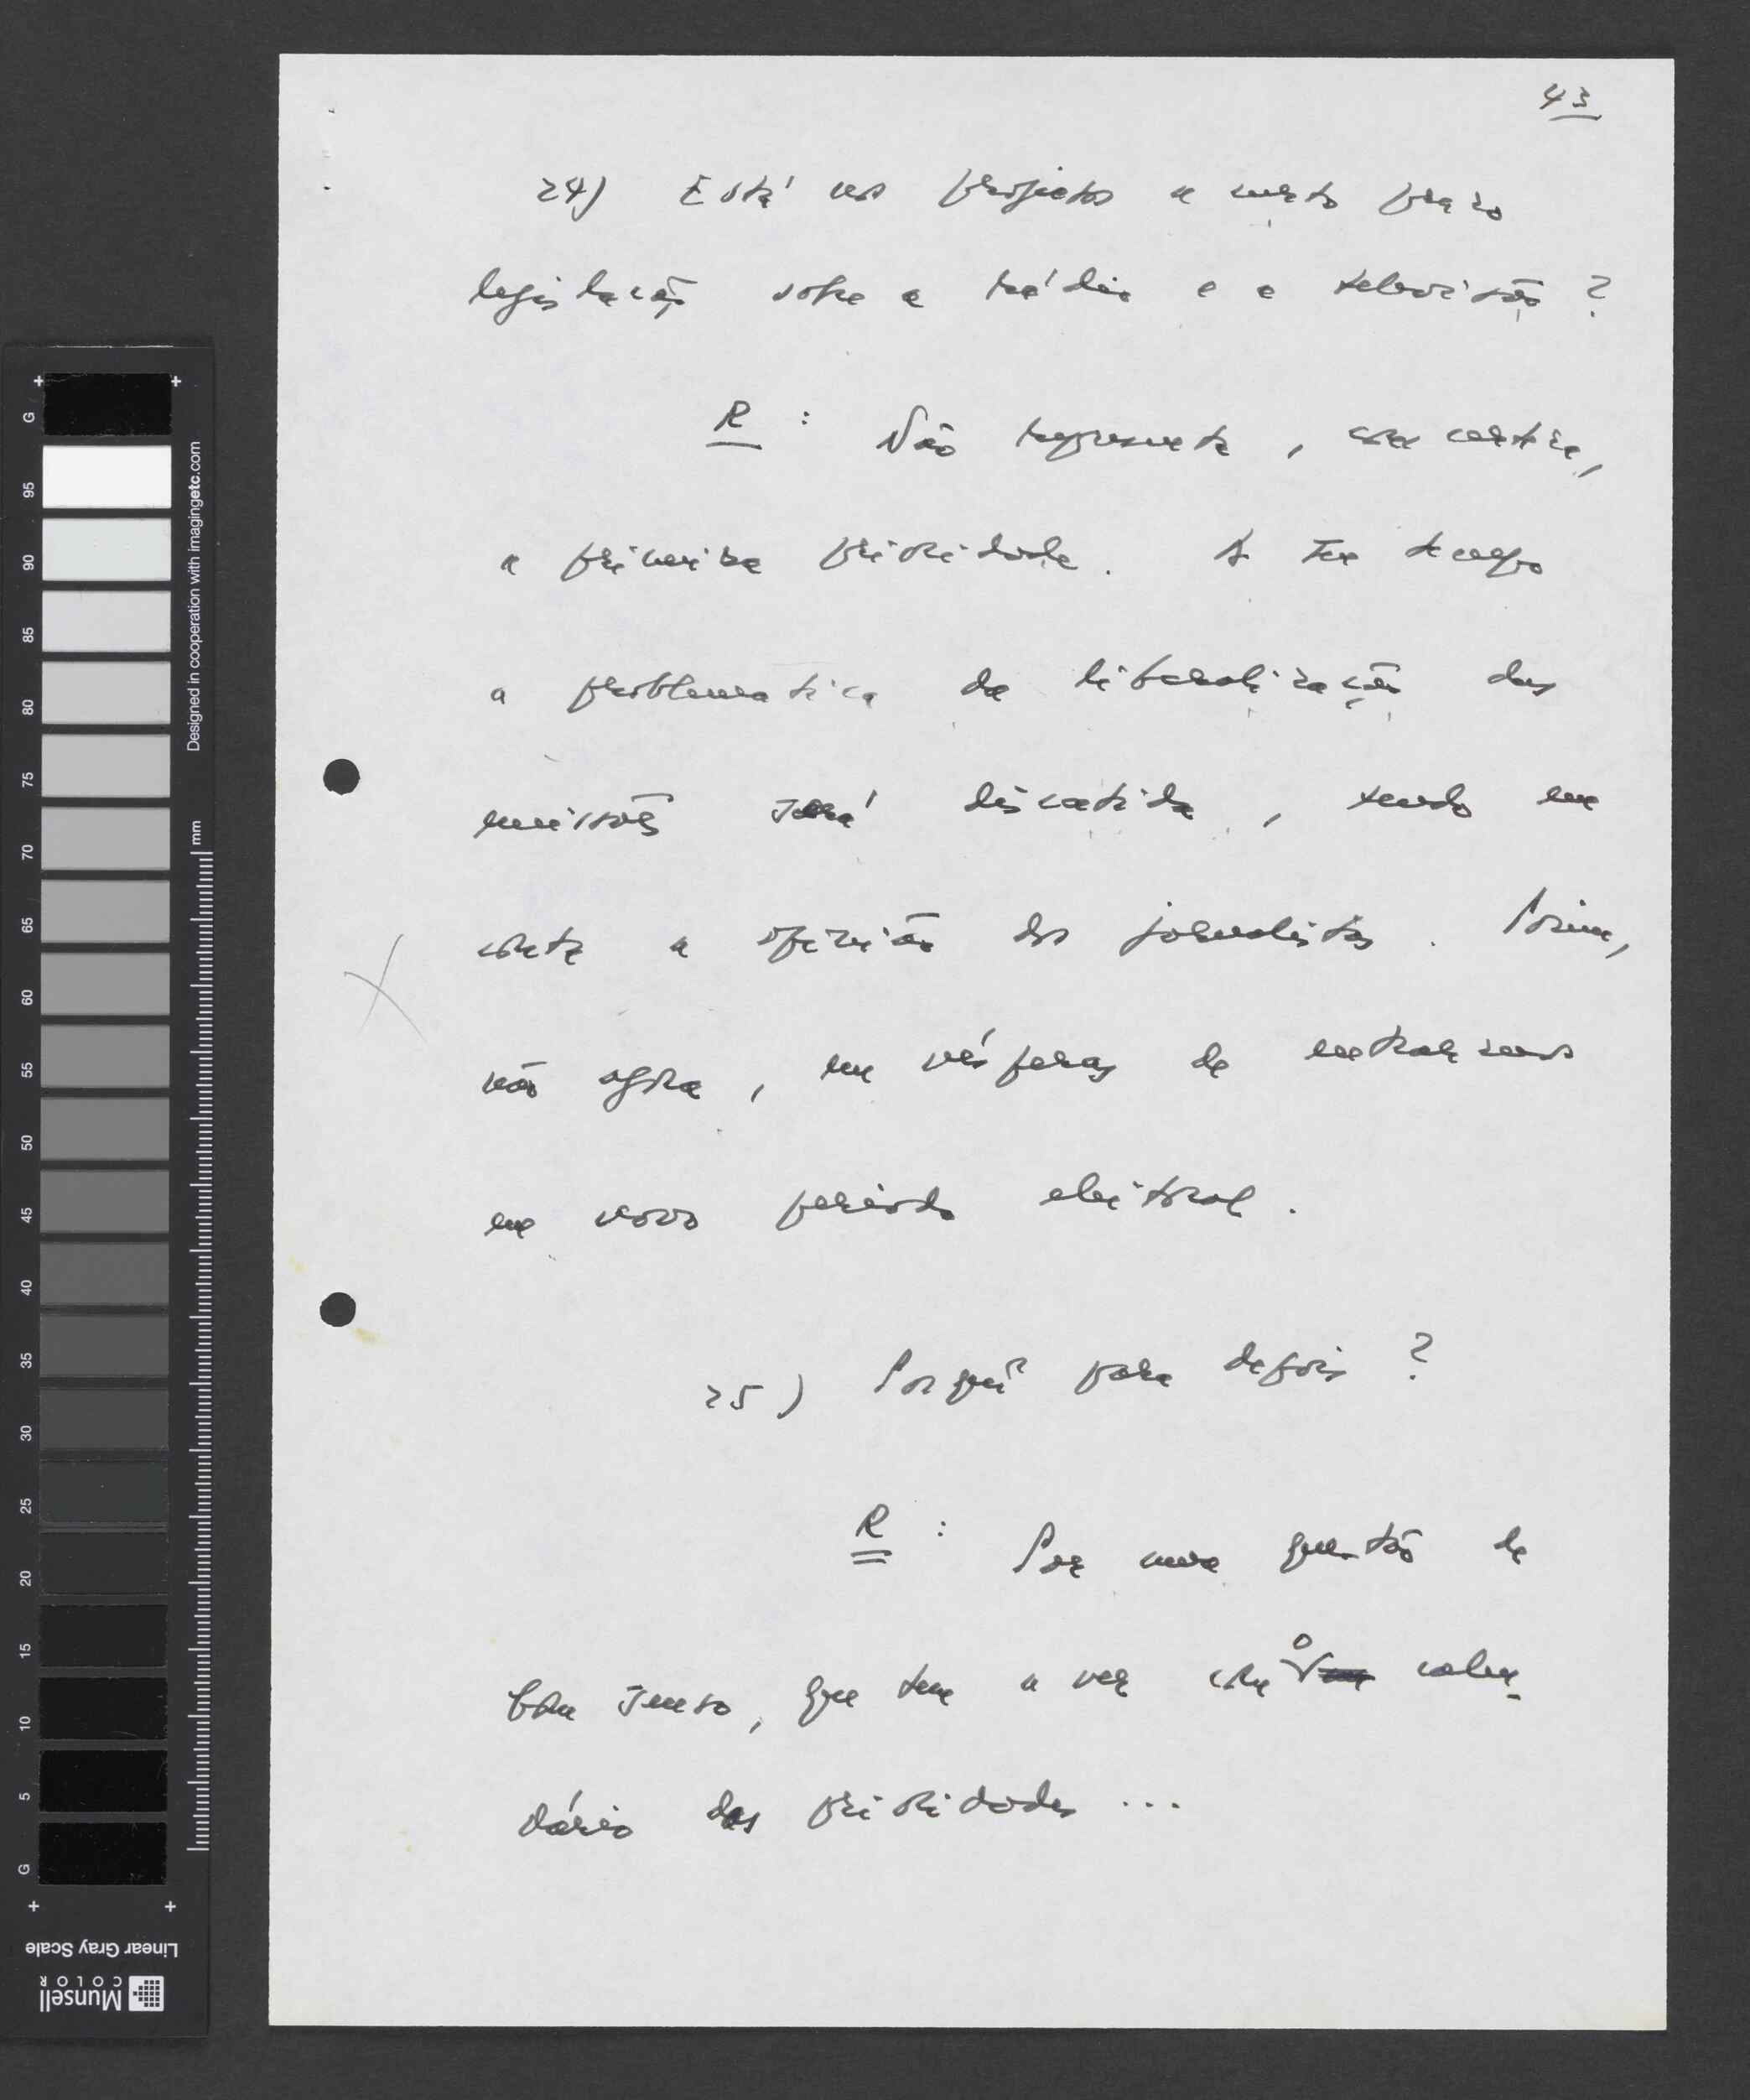 43
24) Está nos projectos a curto prazo
legislação sobre a rádio e a televisão ?
R : Não representa, com certeza,
a primeira prioridade. A seu tempo
a problematica da liberalização das
emissões será discutida, tendo em
conta a opinião dos jornalistas. Porém,
não agora, em vésperas de entrarmos
em novo período eleitoral.
25) Porquê para depois ?
R : Por uma questão de
bom senso, que tem a ver com o calen-
dário das prioridades ...
Designed in cooperation with imagingetc.com
mm
G 95 90 85 80 75 70 65 60 55 50 45 40 35 30 25 20 15 10 5 G
Linear Gray Scale
Munsell
COLOR